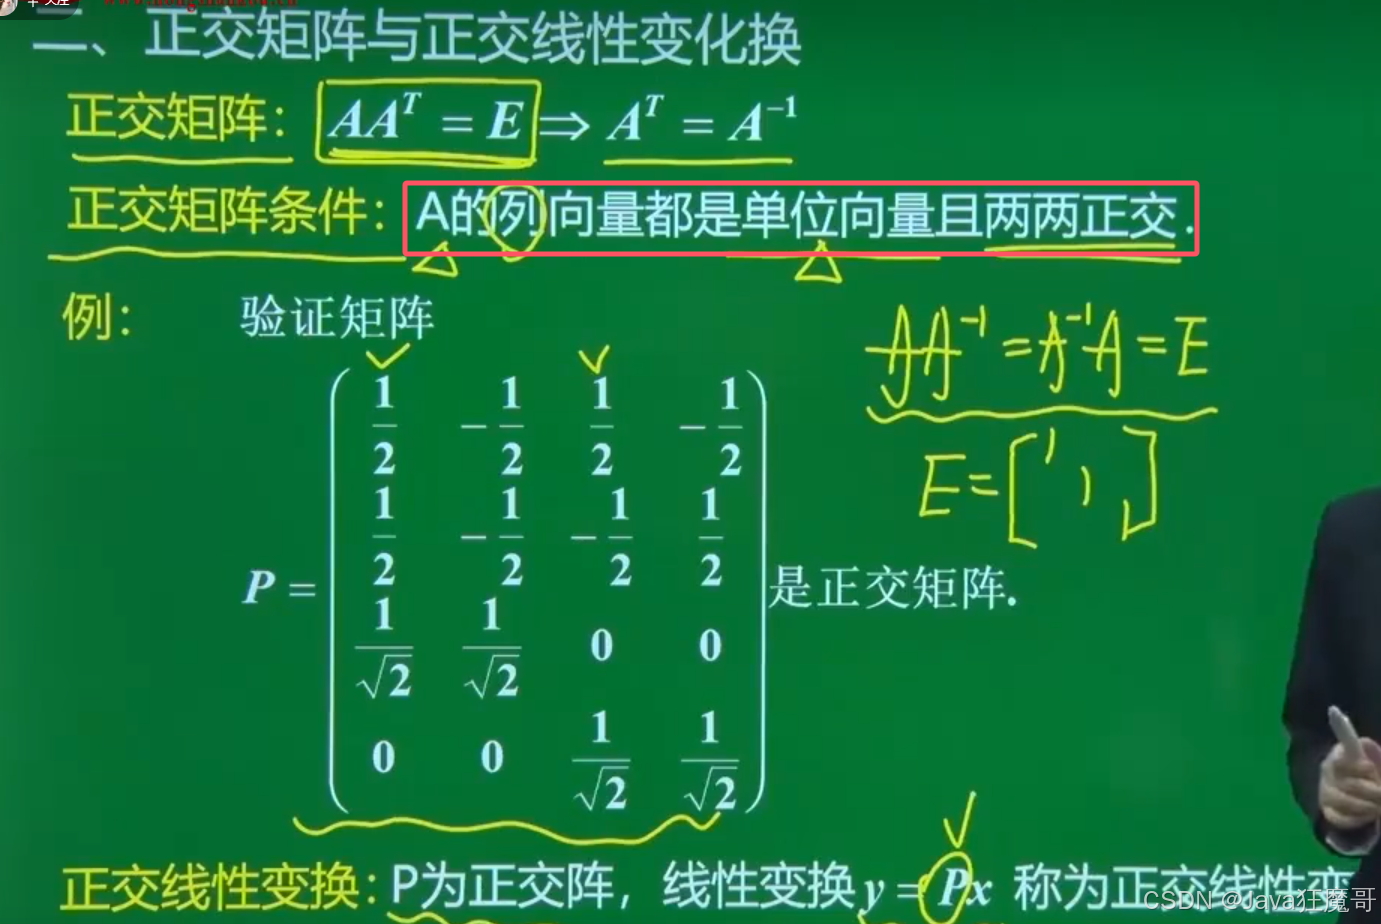 二、正交矩阵与正交线性变化换
正交矩阵： AAᵀ = E ⇒ Aᵀ = A⁻¹
正交矩阵条件：A的列向量都是单位向量且两两正交.
例： 验证矩阵
AA⁻¹=A⁻¹A=E
E=[1 1 1]
1/2 -1/2 1/2 -1/2
1/2 -1/2 -1/2 1/2
P = 是正交矩阵.
1/√2 1/√2 0 0
0 0 1/√2 1/√2
正交线性变换：P为正交阵，线性变换 y = Px 称为正交线性变
CSDN @Java狂魔哥